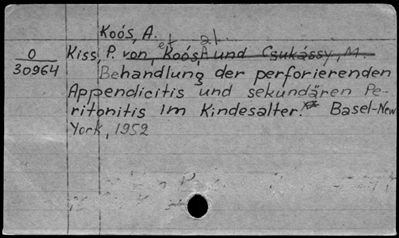 Koós, A.
et al.
0 Kiss, P. von, Koós, A. und Csukássy, M.
30964 Behandlung der perforierenden
Appendicitis und sekundären Pe-
ritonitis im Kindesalter. Basel-New
York, 1952